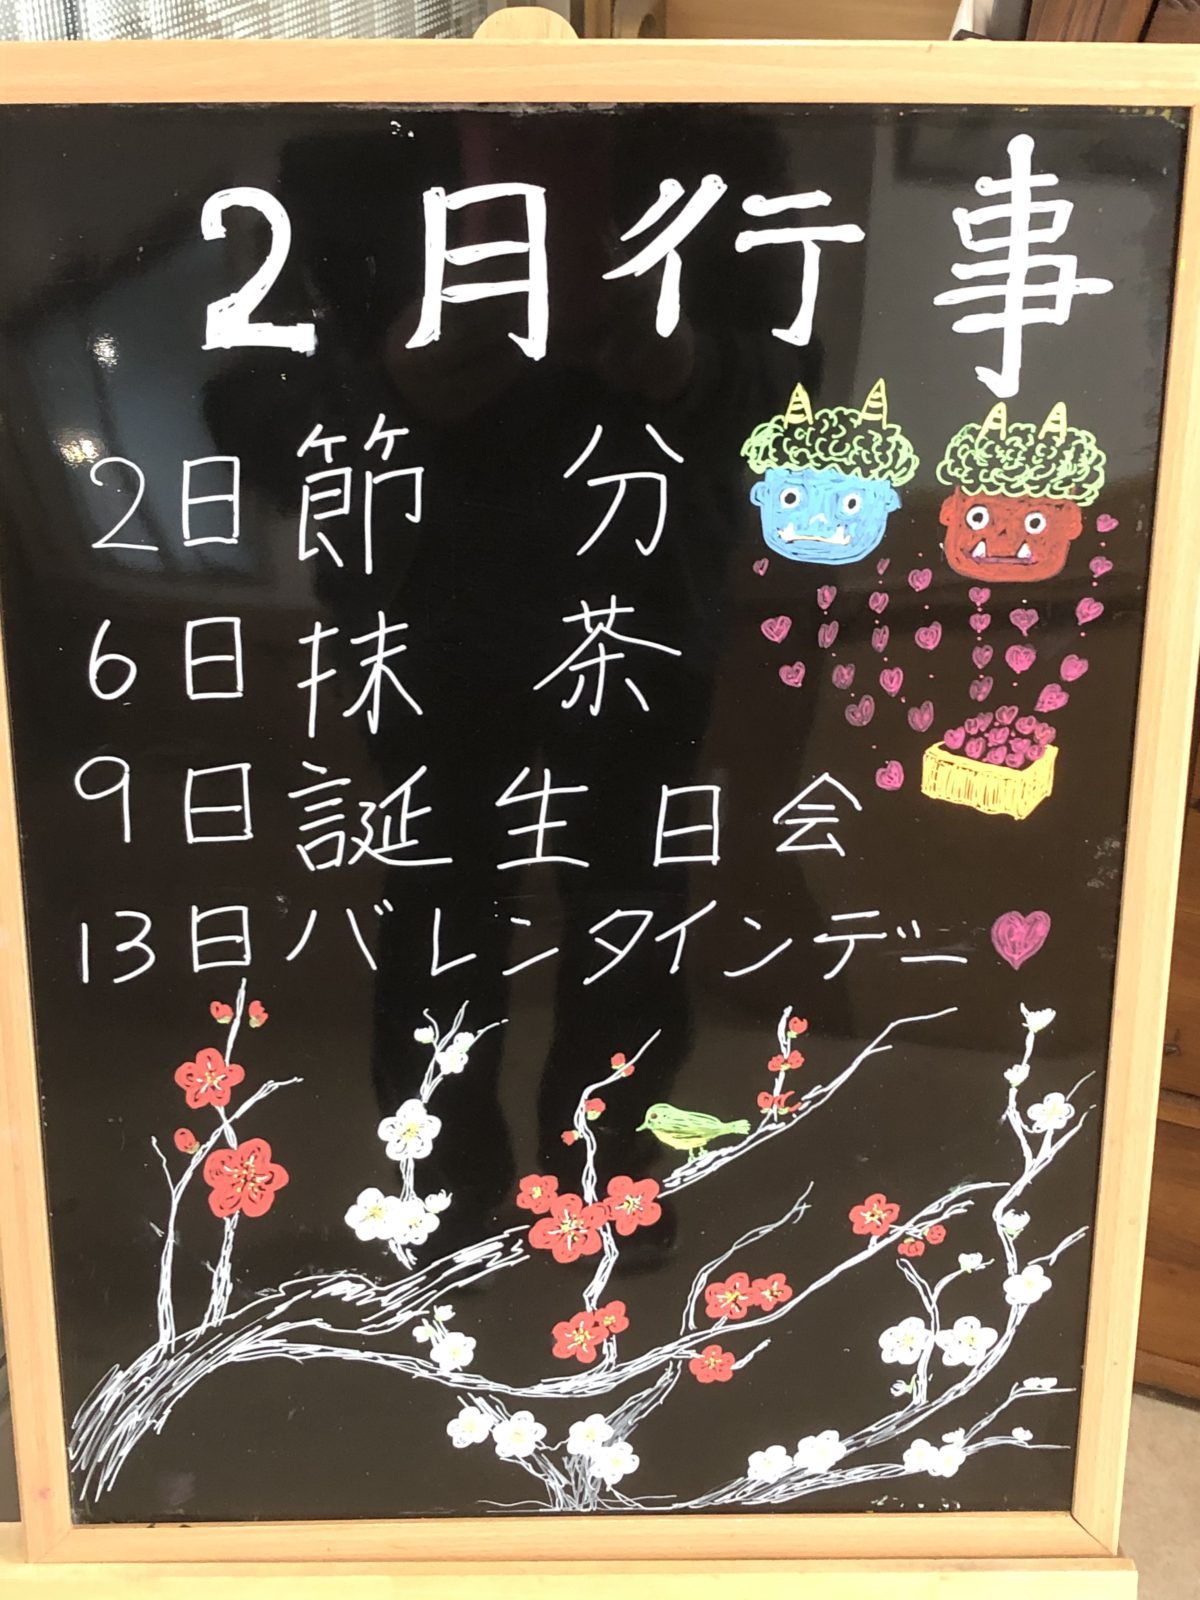 2月行事
2日 節分
6日 抹茶
9日 誕生日会
13日 バレンタインデー